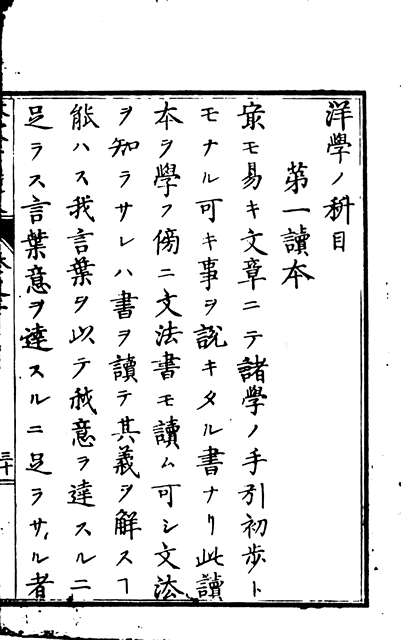 洋學ノ科目
第一讀本
㝡モ易キ文章ニテ諸學ノ手引初歩ト
モナル可キ事ヲ説キタル書ナリ此讀
本ヲ學フ傍ニ文法書モ讀ム可シ文法
ヲ知ラサレハ書ヲ讀テ其義ヲ解スヿ
能ハス我言葉ヲ以テ我意ヲ達スルニ
足ラス言葉意ヲ達スルニ足ラサル者
三十